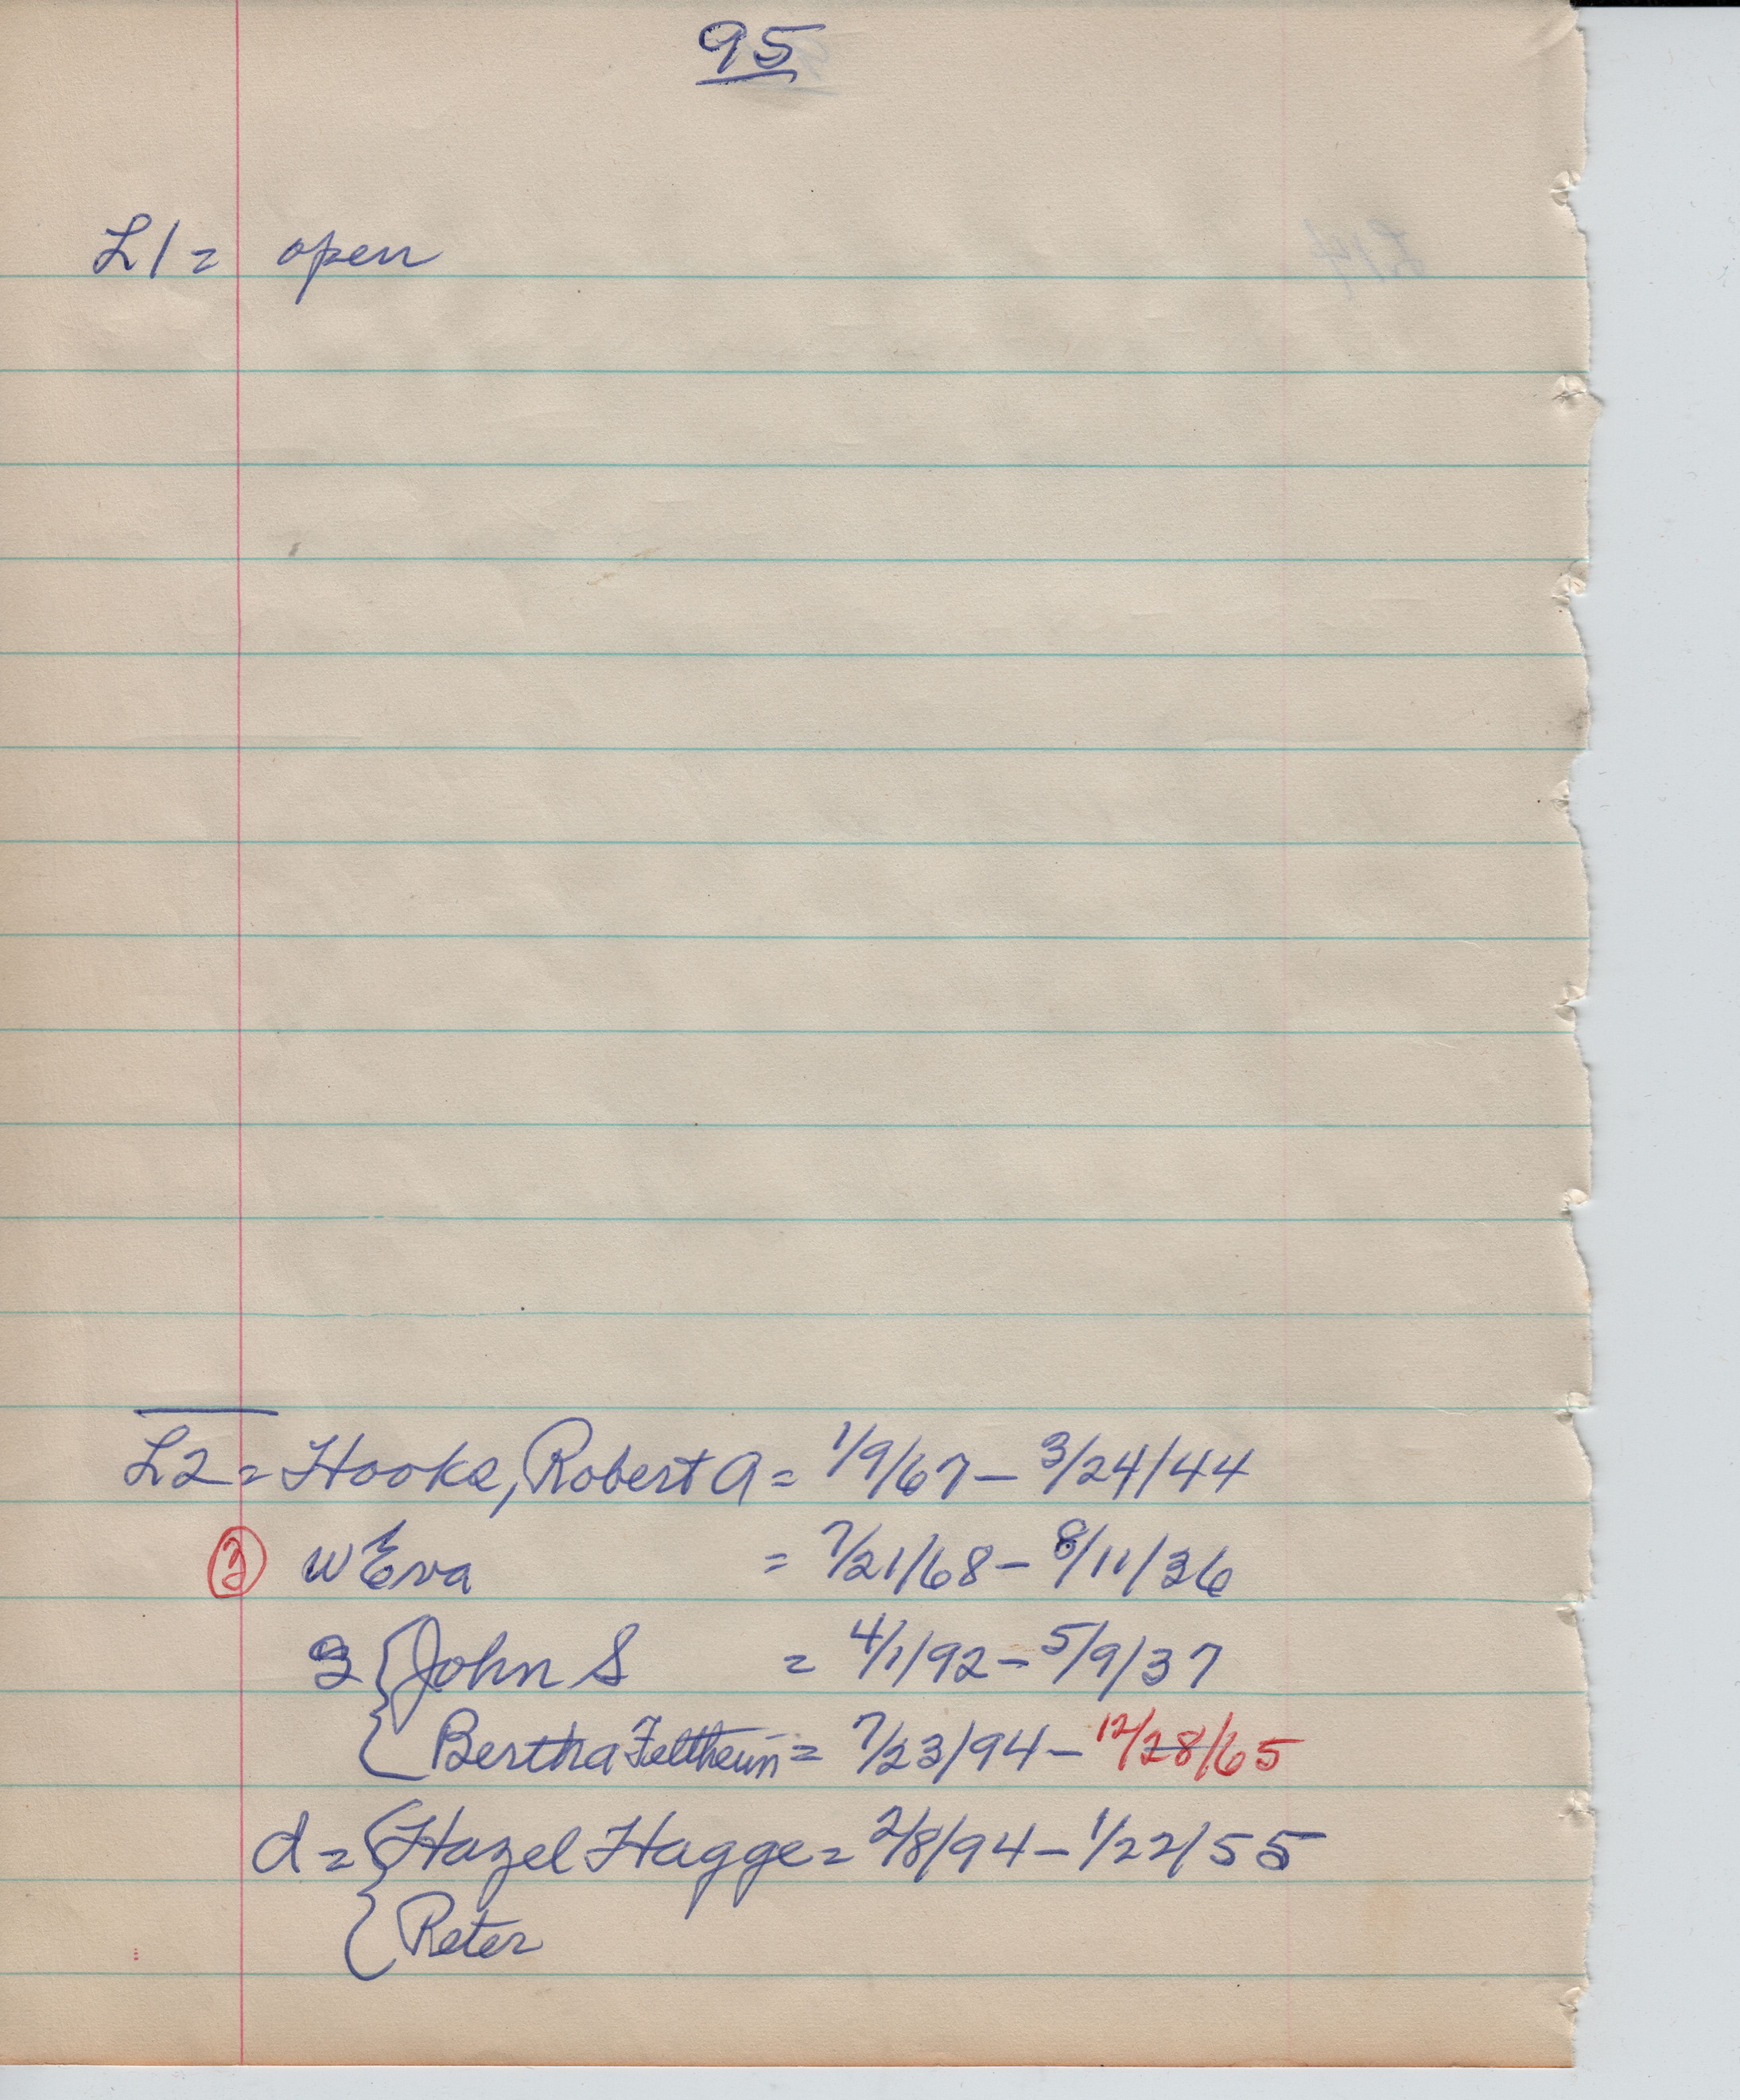 95
L1 = open
L2 = Hooke, Robert A = 1/9/67 – 3/24/44
③ w Eva = 7/21/68 – 8/11/36
S { John S = 4/1/92 – 5/9/37
{ Bertha Feltheim = 7/23/94 – 12/28/65
d = { Hazel Hagge = 2/8/94 – 1/22/55
{ Peter